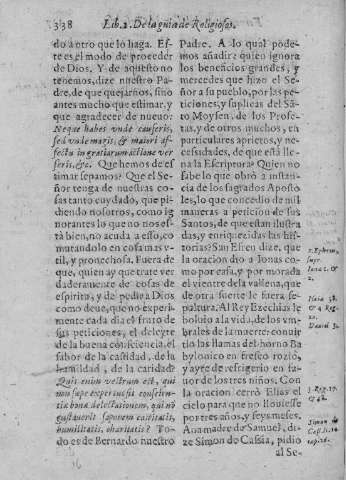 338 Lib. 2. De la guia de Religiosas.
do a otro que lo haga. Es-
te es el modo de proceder
de Dios. Y de aquesto no
tenemos, dize nuestro Pa-
dre, de que quejarnos, sino
antes mucho que estimar, y
que agradecer de nueuo:
Neque habes vnde causeris,
sed vnde magis, & maiori af-
fectu in gratiarum actione ver-
seris, &c. Que hemos de es-
timar sepamos? Que el Se-
ñor tenga de nuestras co-
sas tanto cuydado, que pi-
diendo nosotros, como ig
norantes lo que no nos es-
tà bien, no acuda a esso, co
mutandolo en cosa mas v-
til, y prouechosa. Fuera de
que, quien ay que trate ver
daderamente de cosas de
espiritu, y de pedir a Dios
como deue, que no experi-
mente cada dia el fruto de
sus peticiones, el deleyte
de la buena consciencia, el
sabor de la castidad, de la
humildad, de la caridad?
Quis enim vestrum est, qui
non sæpe expertus sit conscien-
tiæ bonæ delectationem, qui nõ
gustauerit saporem castitatis,
humilitatis, charitatis? To-
do es de Bernardo nuestro
Padre. A lo qual pode-
mos añadir: quien ignora
los beneficios grandes, y
mercedes que hizo el Se-
ñor a su pueblo, por las pe-
ticiones, y suplicas del Sã-
to Moysen, de los Profe-
tas, y de otros muchos, en
particulares aprietos, y ne-
cessidades, de que està lle-
na la Escriptura? Quien no
sabe lo que obrò a instan-
cia de los sagrados Aposto
les, lo que concedio de mil
maneras a peticion de sus
Santos, de que estan ilustra
das, y enriquezidas las his-
torias? San Efren dize, que
la oracion dio a Ionas co-
mo por casa, y por morada
el vientre de la vallena, que
de otra suerte le fuera se-
pultura. Al Rey Ezechias le
boluio a la vida, de los vm-
brales de la muerte: conuir
tio las llamas del horno Ba
bylonico en fresco rozio,
y ayre de refrigerio en fa-
uor de los tres niños. Con
la oracion cerrò Elias el
cielo para que no llouiesse
por tres años, y seys meses.
Ana madre de Samuel, di-
ze Simon de Cassia, pidio
al Se-
Ionæ 1. &
2.
Isaiæ 38.
& 4. Reg.
Daniel 3.
3. Reg. 17.
Simon de
Cass. li.
cap.